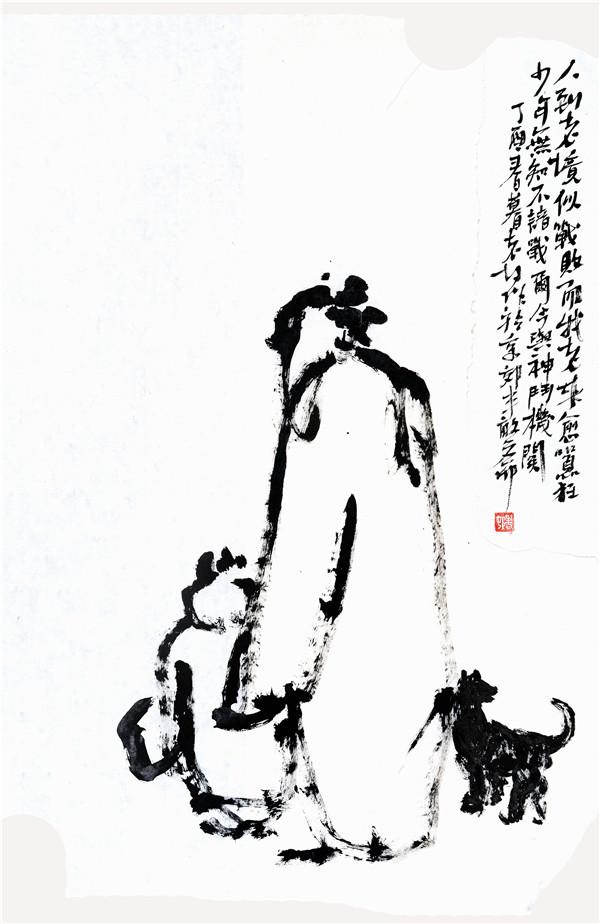 人到老境似戰敗而我老來愈囂狂
少年無知不諳戰爾今與神鬥機關
丁酉春暮老村作於京郊半畝之卯